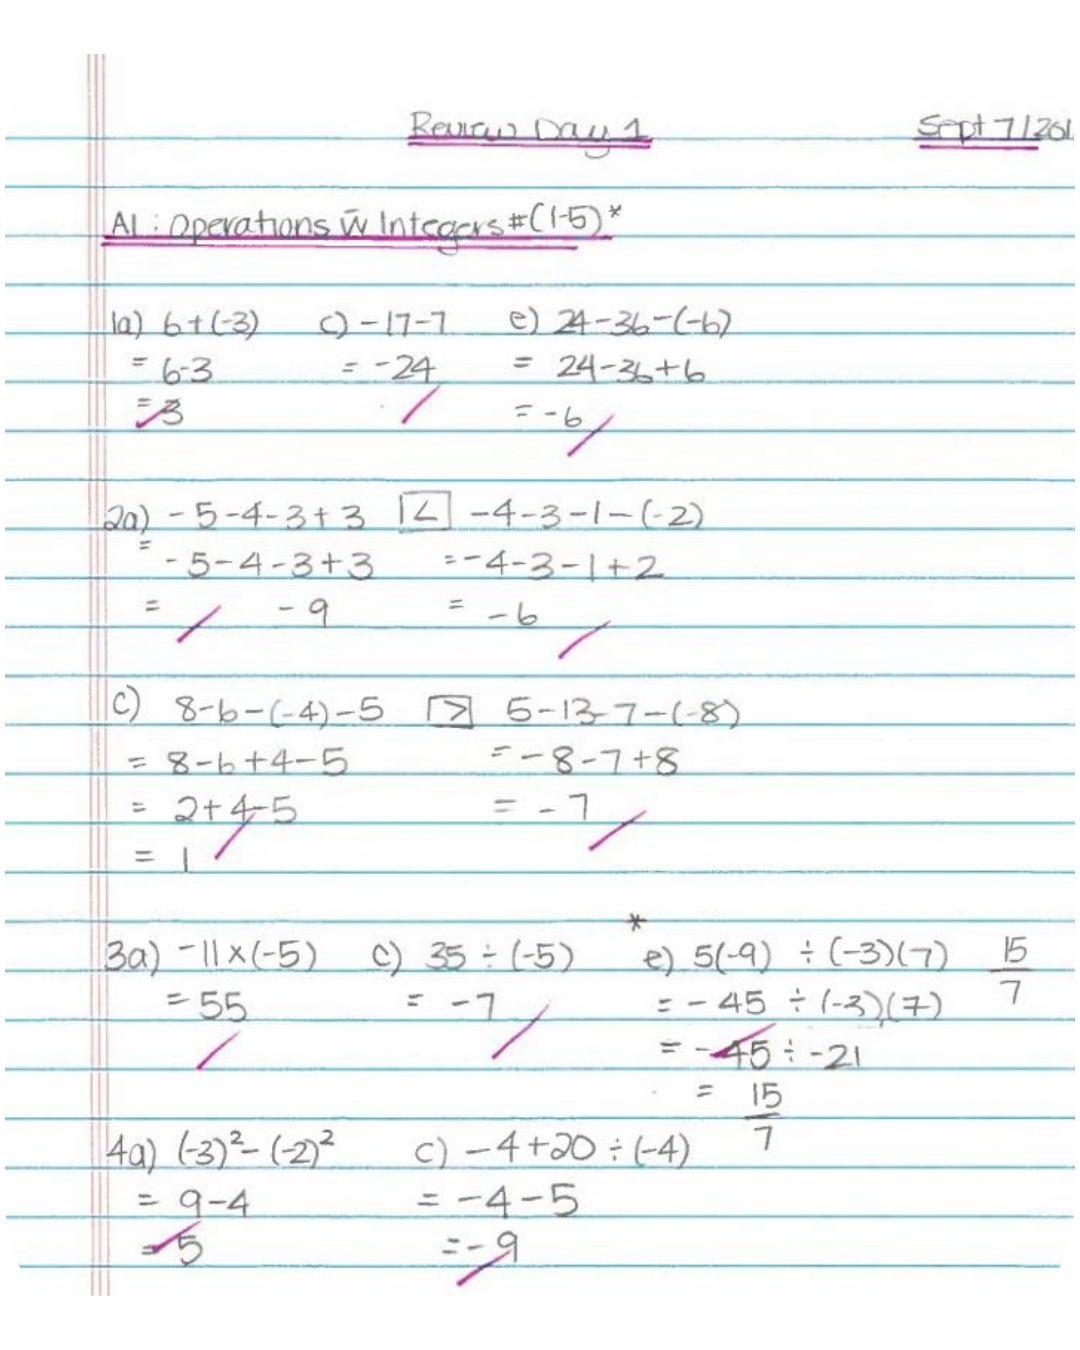 Review Day 1 Sept 7/201
A1: Operations w̄ Integers #(1-5)*
1a) 6+(-3) c) -17-7 e) 24-36-(-6)
= 6-3 = -24 = 24-36+6
= 3 = -6
2a) -5-4-3+3 < -4-3-1-(-2)
= -5-4-3+3 = -4-3-1+2
= -9 = -6
c) 8-6-(-4)-5 > 5-13-7-(-8)
= 8-6+4-5 = -8-7+8
= 2+4-5 = -7
= 1
*
3a) -11×(-5) c) 35÷(-5) e) 5(-9) ÷ (-3)(7) 15/7
= 55 = -7 = -45 ÷ (-3)(7)
= -45 ÷ -21
= 15/7
4a) (-3)²-(-2)² c) -4+20÷(-4)
= 9-4 = -4-5
= 5 = -9